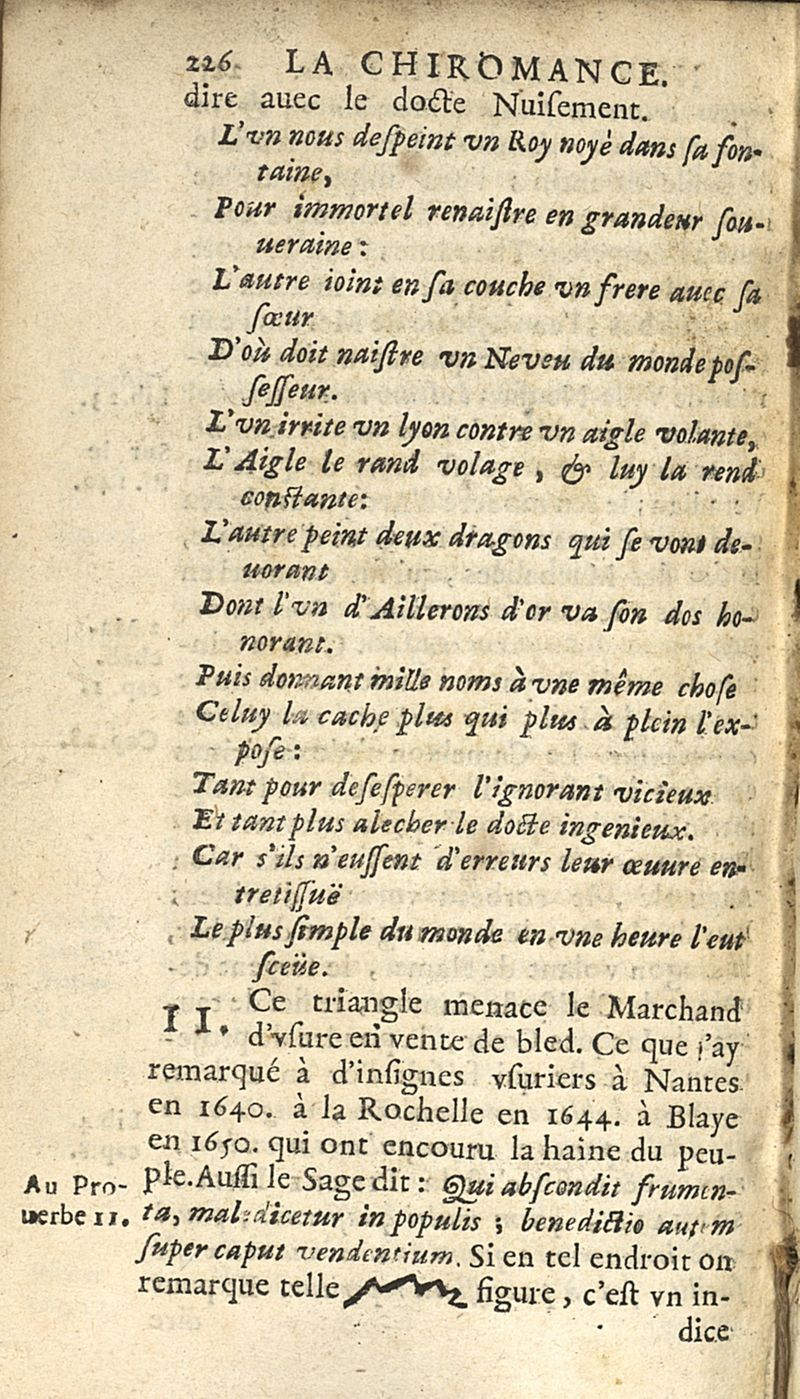 226. LA CHIROMANCE.
dire auec le docte Nuiſement.
L'vn nous deſpeint vn Roy noyè dans ſa fon-
taine,
Pour immortel renaiſtre en grandeur ſou-
ueraine :
L'autre ioint en ſa couche vn frere auec ſa
ſœur
D'où doit naiſtre vn Neveu du monde poſ-
ſeſſeur.
L'vn irrite vn lyon contre vn aigle volante,
L'Aigle le rand volage , & luy la rend
conſtante:
L'autre peint deux dragons qui ſe vont de-
uorant
Dont l'vn d'Aillerons d'or va ſon dos ho-
norant.
Puis donnant mille noms à vne même choſe
Celuy la cache plus qui plus à plein l'ex-
poſe :
Tant pour deſeſperer l'ignorant vicieux
Et tant plus alecher le docte ingenieux.
Car s'ils n'euſſent d'erreurs leur œuure en-
tretiſſuë
Le plus ſimple du monde en vne heure l'eut
ſceüe.
11. Ce triangle menace le Marchand
d'vſure en vente de bled. Ce que j'ay
remarqué à d'inſignes vſuriers à Nantes
en 1640. à la Rochelle en 1644. à Blaye
en 1650. qui ont encouru la haine du peu-
ple. Auſſi le Sage dit : Qui abſcondit frumen-
Au Pro-
uerbe 11.
ta, maledicetur in populis ; benedictio autem
ſuper caput vendentium. Si en tel endroit on
remarque telle figure, c'eſt vn in-
dice